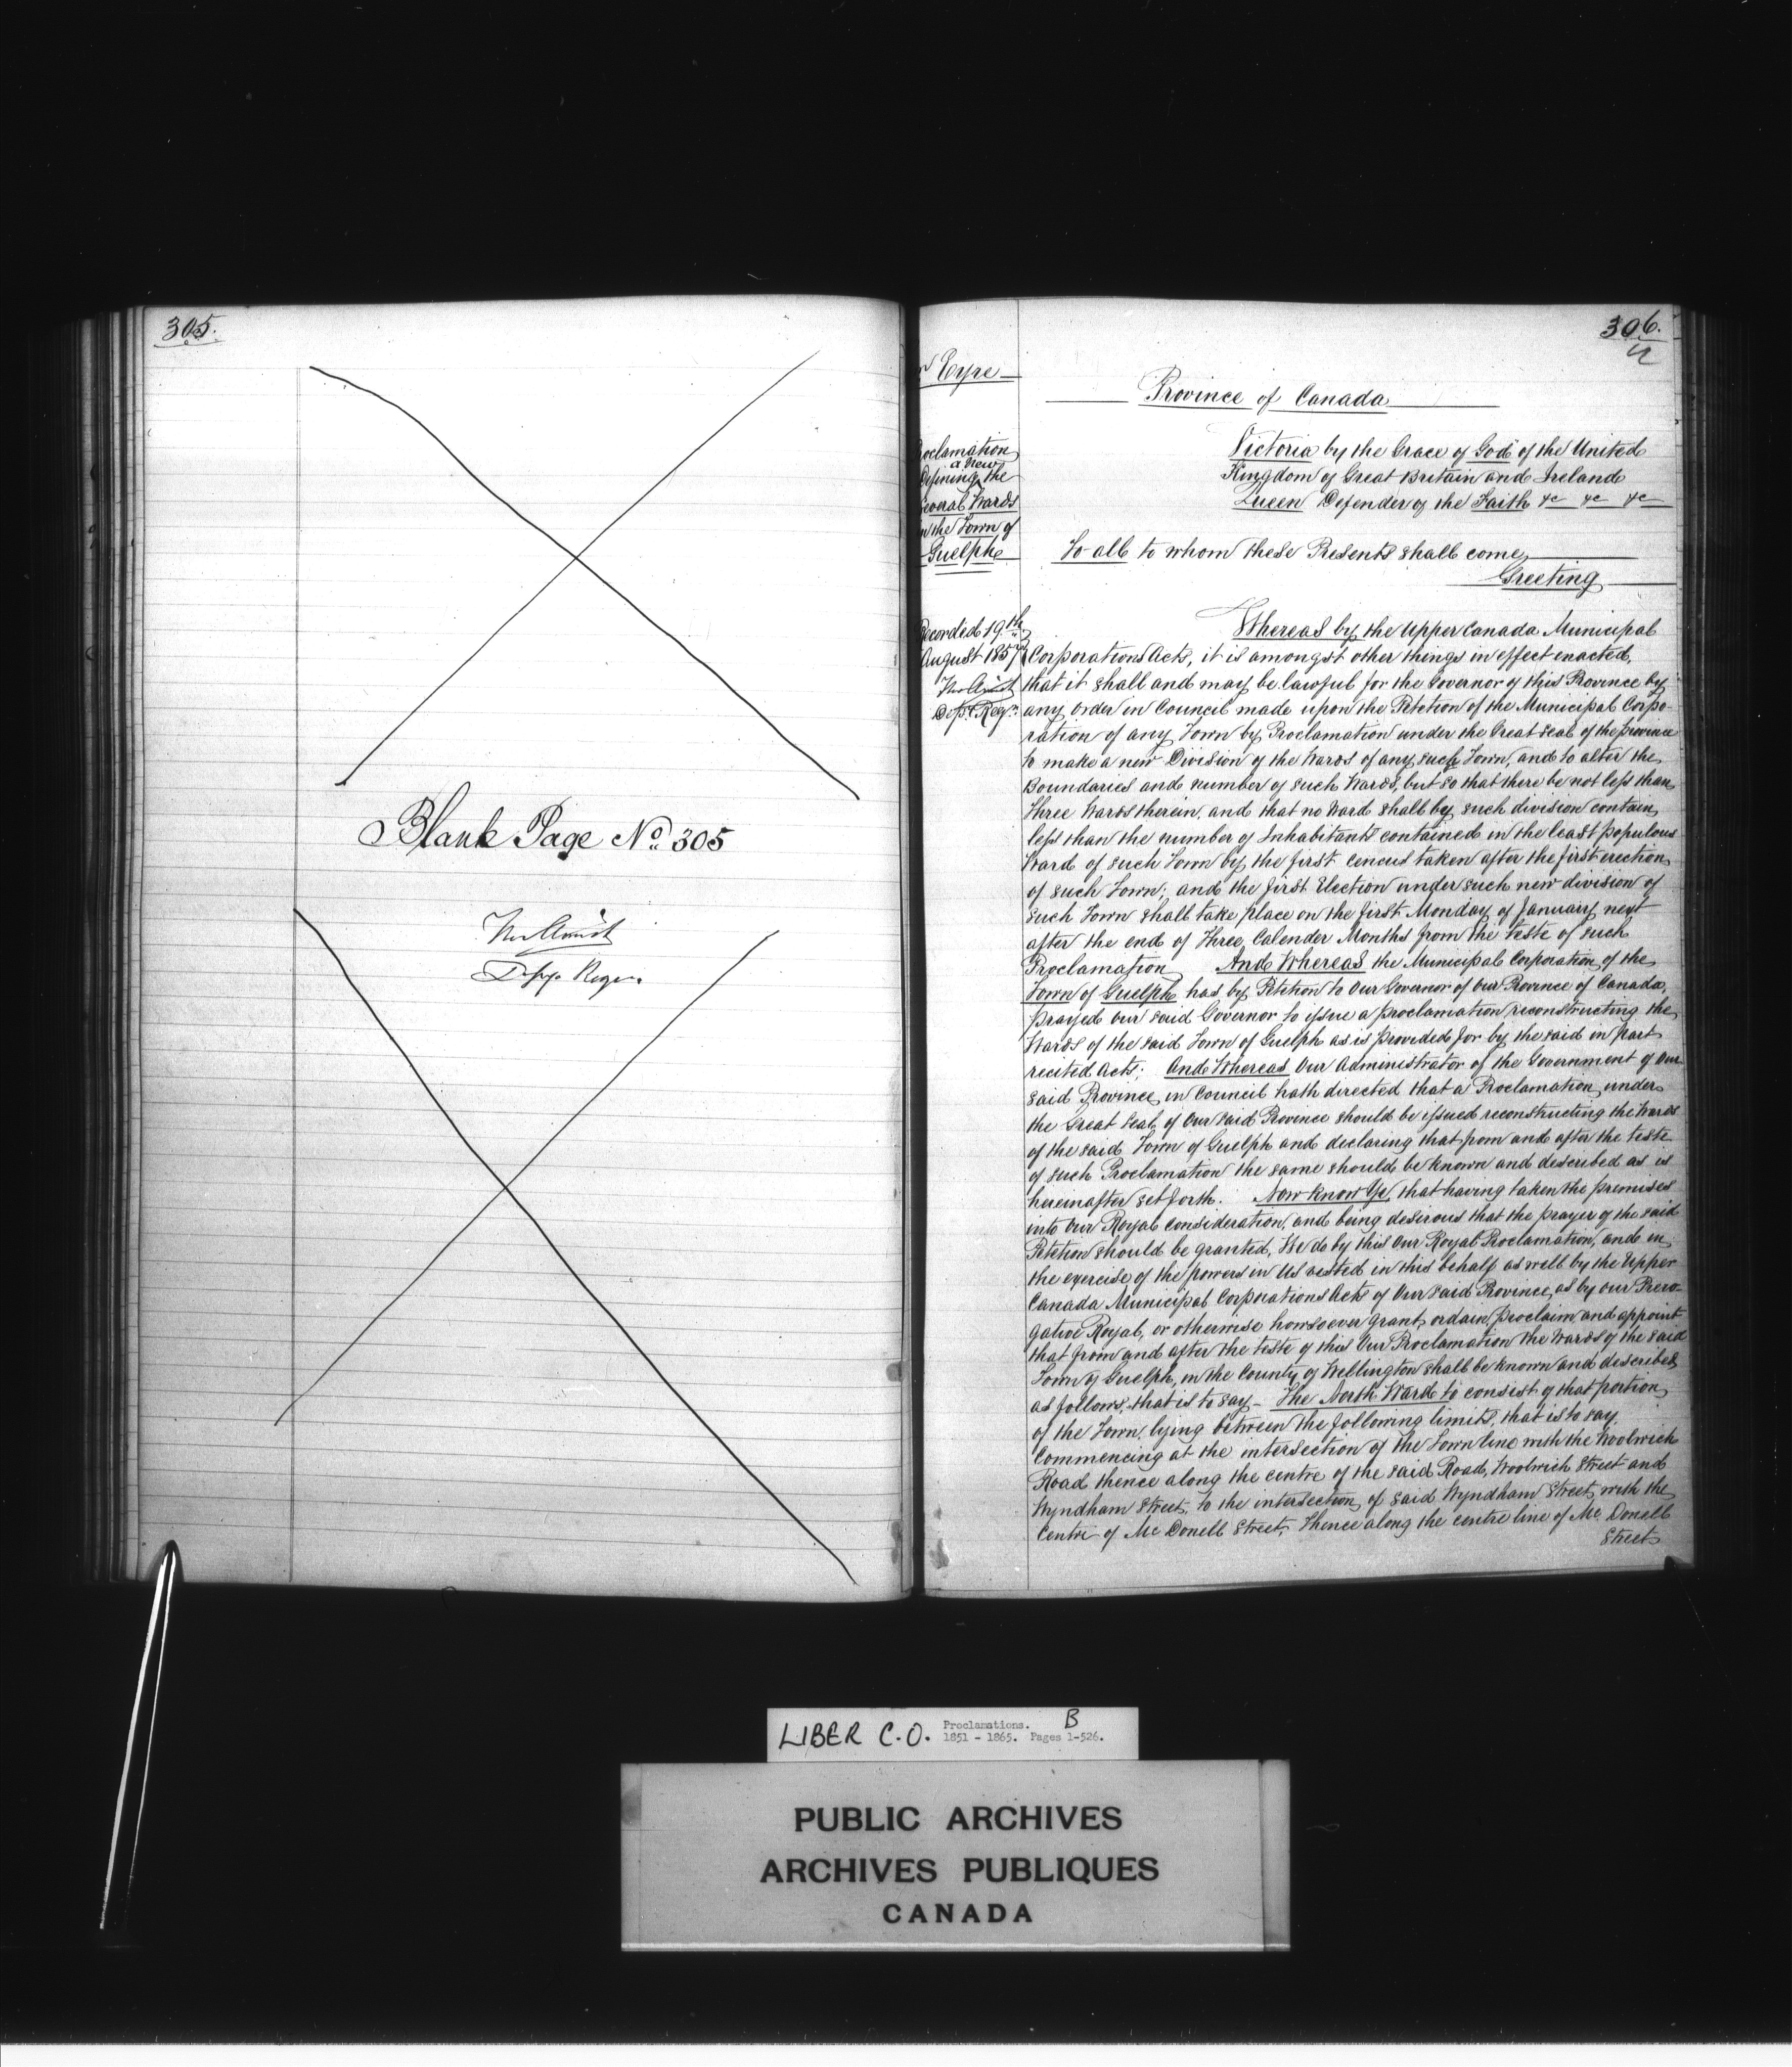 305.
Blank Page No. 305
Depy. Regr.
306.
Eyre
Province of Canada
Proclamation
a new
Defining the
Several Wards
in the Town of
Guelph
Victoria by the Grace of God of the United
Kingdom of Great Britain and Ireland
Queen Defender of the Faith &c &c &c
To all to whom these Presents shall come
Greeting
Recorded 19th
August 1857
Depy. Regr.
Whereas by the Upper Canada Municipal
Corporations Acts, it is amongst other things in effect enacted,
that it shall and may be lawful for the Governor of this Province by
any Order in Council made upon the Petition of the Municipal Corpo-
ration of any Town by Proclamation under the Great Seal of the Province
to make a new Division of the Wards of any such Town, and to alter the
Boundaries and number of such Wards, but so that there be not less than
Three Wards therein, and that no Ward shall by such division contain
less than the number of Inhabitants contained in the least populous
Ward of such Town by the first census taken after the first erection
of such Town; and the first Election under such new division of
such Town shall take place on the first Monday of January next
after the end of Three Calender Months from the teste of such
Proclamation And Whereas the Municipal Corporation of the
Town of Guelph has by Petition to Our Governor of Our Province of Canada,
prayed Our said Governor to issue a proclamation reconstructing the
Wards of the said Town of Guelph as is provided for by the said in part
recited Acts; And Whereas Our Administrator of the Government of Our
said Province in Council hath directed that a Proclamation under
the Great Seal of Our said Province should be issued reconstructing the Wards
of the said Town of Guelph and declaring that from and after the teste
of such Proclamation the same should be known and described as is
hereinafter set forth. Now Know Ye, that having taken the premises
into Our Royal consideration, and being desirous that the prayer of the said
Petition should be granted, We do by this Our Royal Proclamation, and in
the exercise of the powers in Us vested in this behalf as well by the Upper
Canada Municipal Corporations Acts of Our said Province, as by our Prero-
gative Royal, or otherwise howsoever grant, ordain, proclaim and appoint
that from and after the teste of this Our Proclamation the Wards of the said
Town of Guelph, in the County of Wellington shall be known and described
as follows, that is to say – The North Ward to consist of that portion
of the Town, lying between the following limits, that is to say,
Commencing at the intersection of the Town line with the Woolwich
Road thence along the centre of the said Road, Woolwich Street and
Wyndham Street, to the intersection of said Wyndham Street with the
Centre of Mc Donell Street, Thence along the centre line of Mc Donell
Street
LIBER C.O. Proclamations. B
1851 - 1865. Pages 1-526.
PUBLIC ARCHIVES
ARCHIVES PUBLIQUES
CANADA